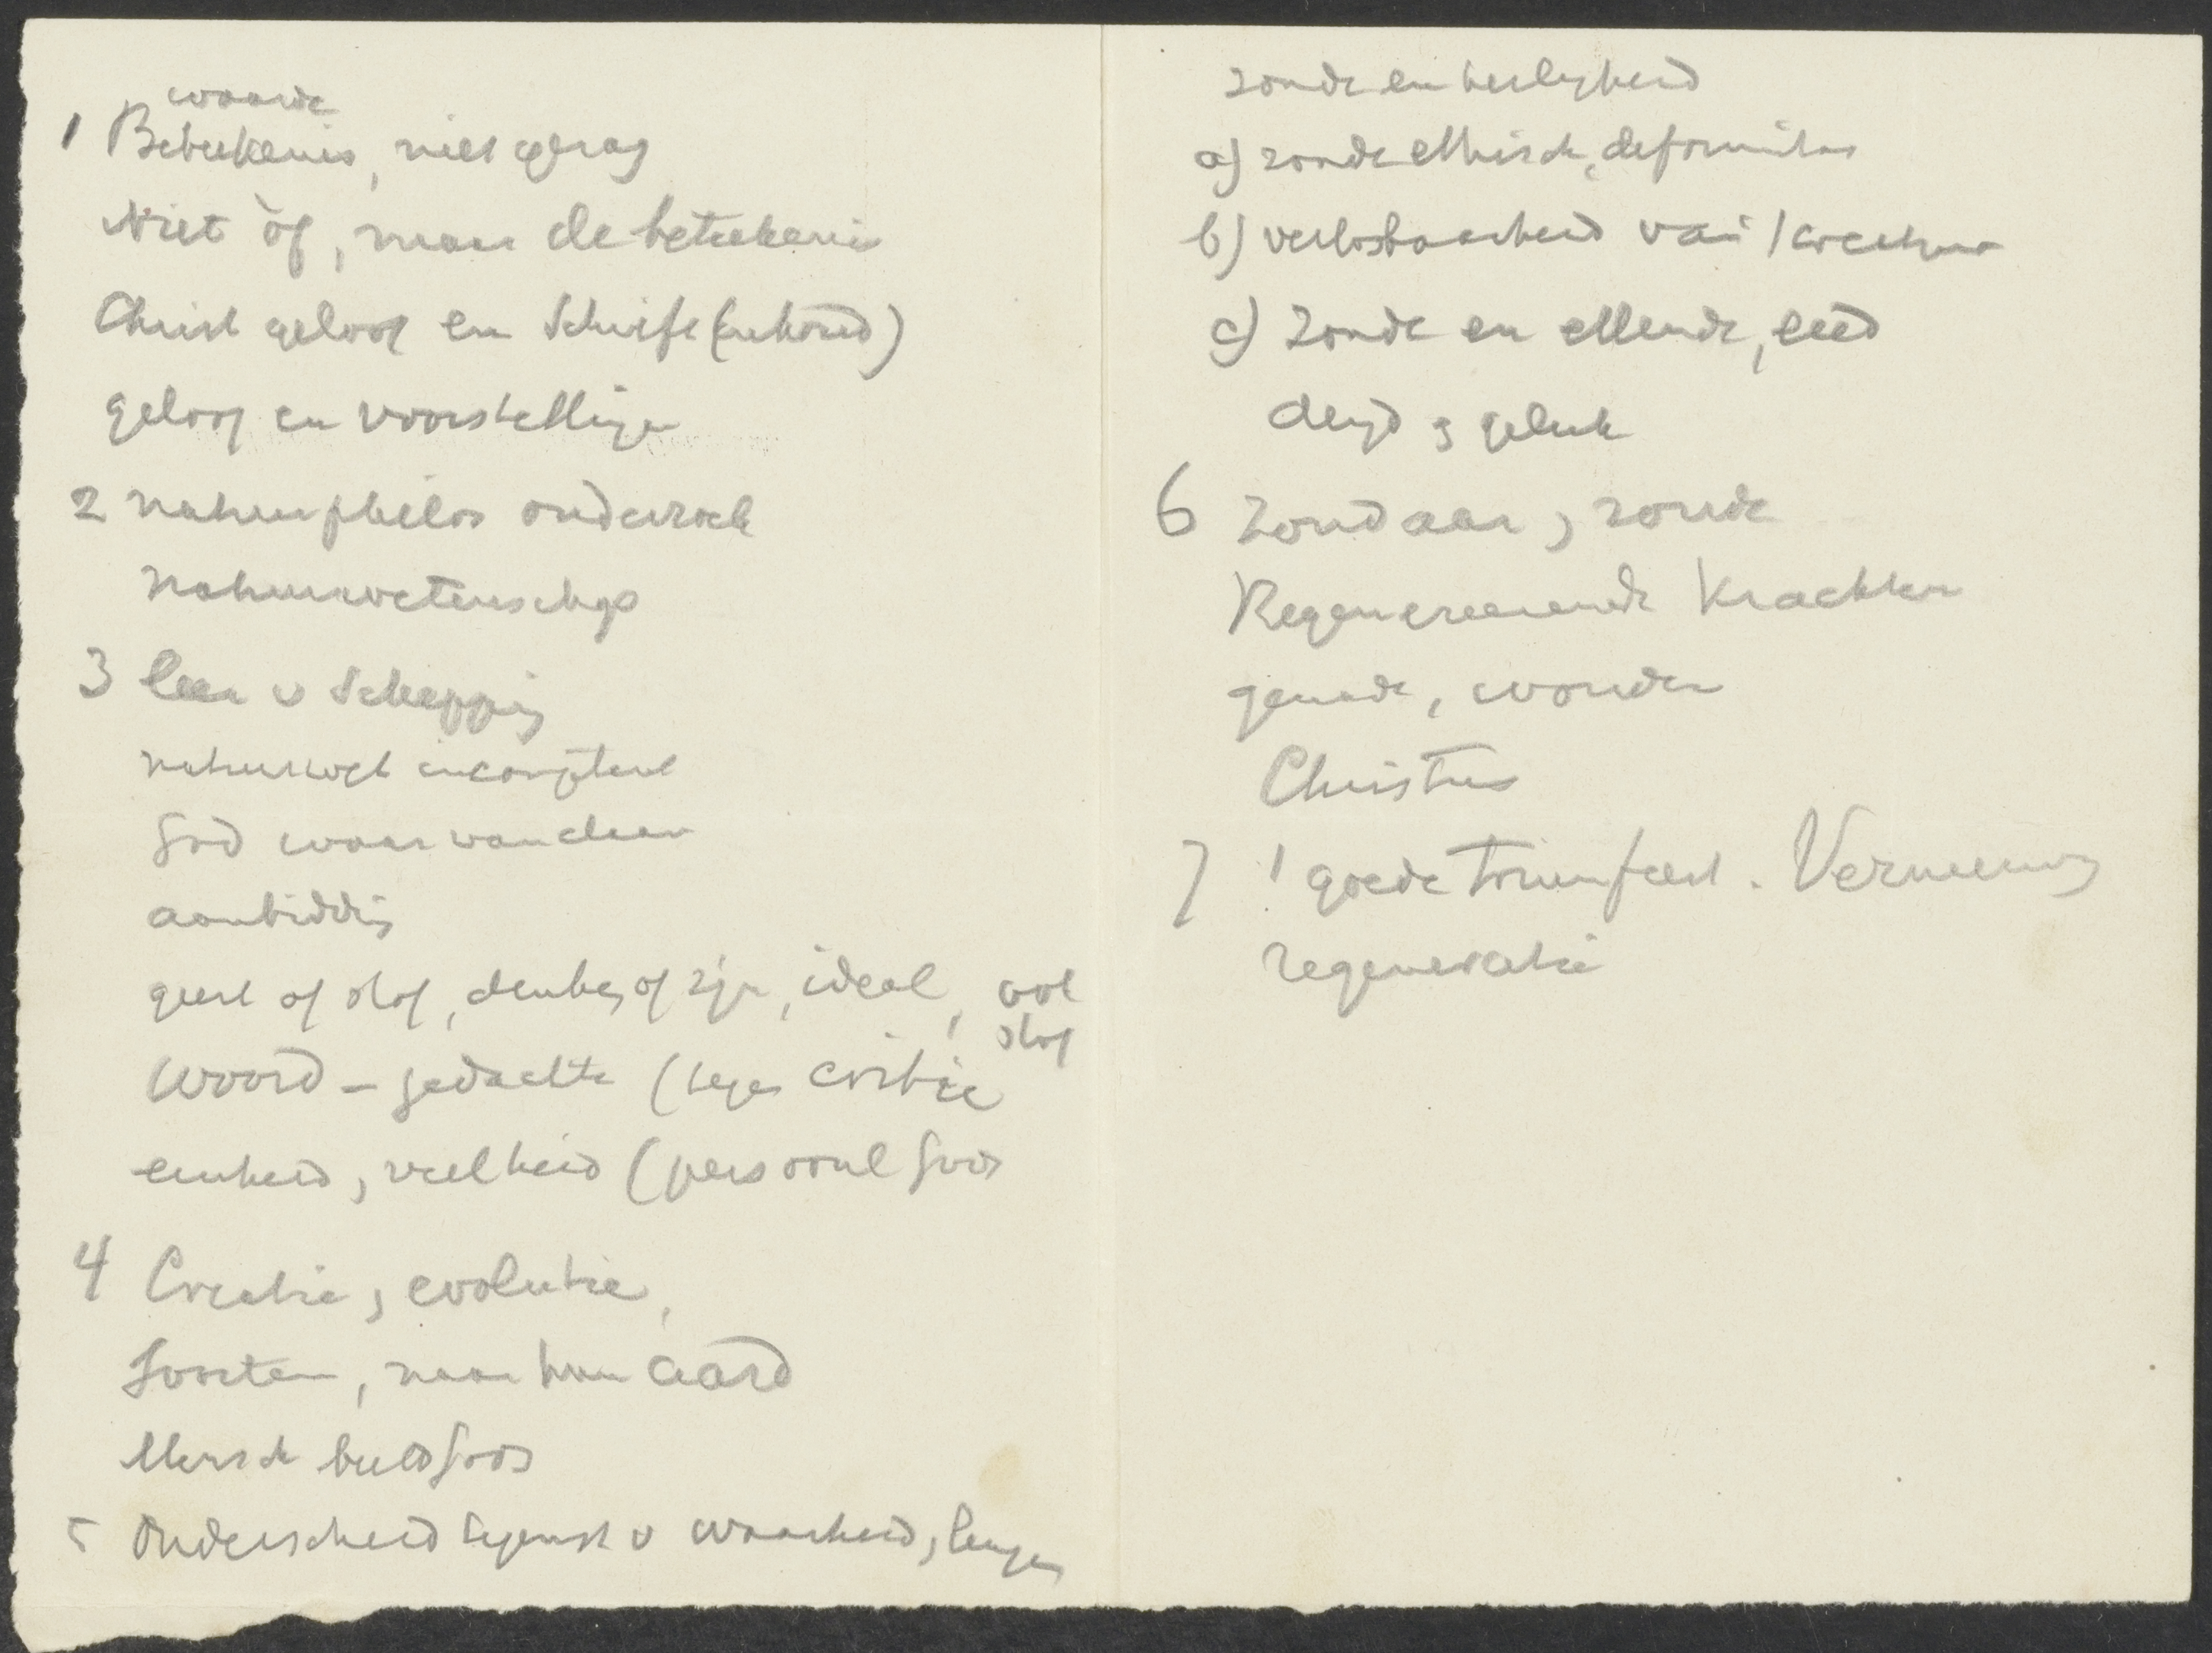 waarde
1 Beteekenis, niet gezag
Niet òf, maar de beteekenis
Christ geloof en Schrift (inhoud)
geloof en voorstellingen
2 natuurphilos onderzoek
natuurwetenschap
3 leer v Schepping
natuurwet incompetent
God waar vandaan
aanbidding
geest of stof, denken of zijn, ideal, ook
stof
Woord - gedachte (tegen critiek
eenheid, veelheid (persoonl God
4 Creatie, evolutie,
Soorten, naar hun aard
Mensch beeld Gods
5 Onderscheid tegenst v waarheid, leugen
zonde en heiligheid
a) zonde ethisch, deformitas
b) verlosbaarheid van
c) Zonde en ellende, leed
deugd & geluk
6 Zondaar, zonde
Regenereerende Krachten
genade, wonder
Christus
7 't goede triumfeert. Vernieuwing
regeneratie